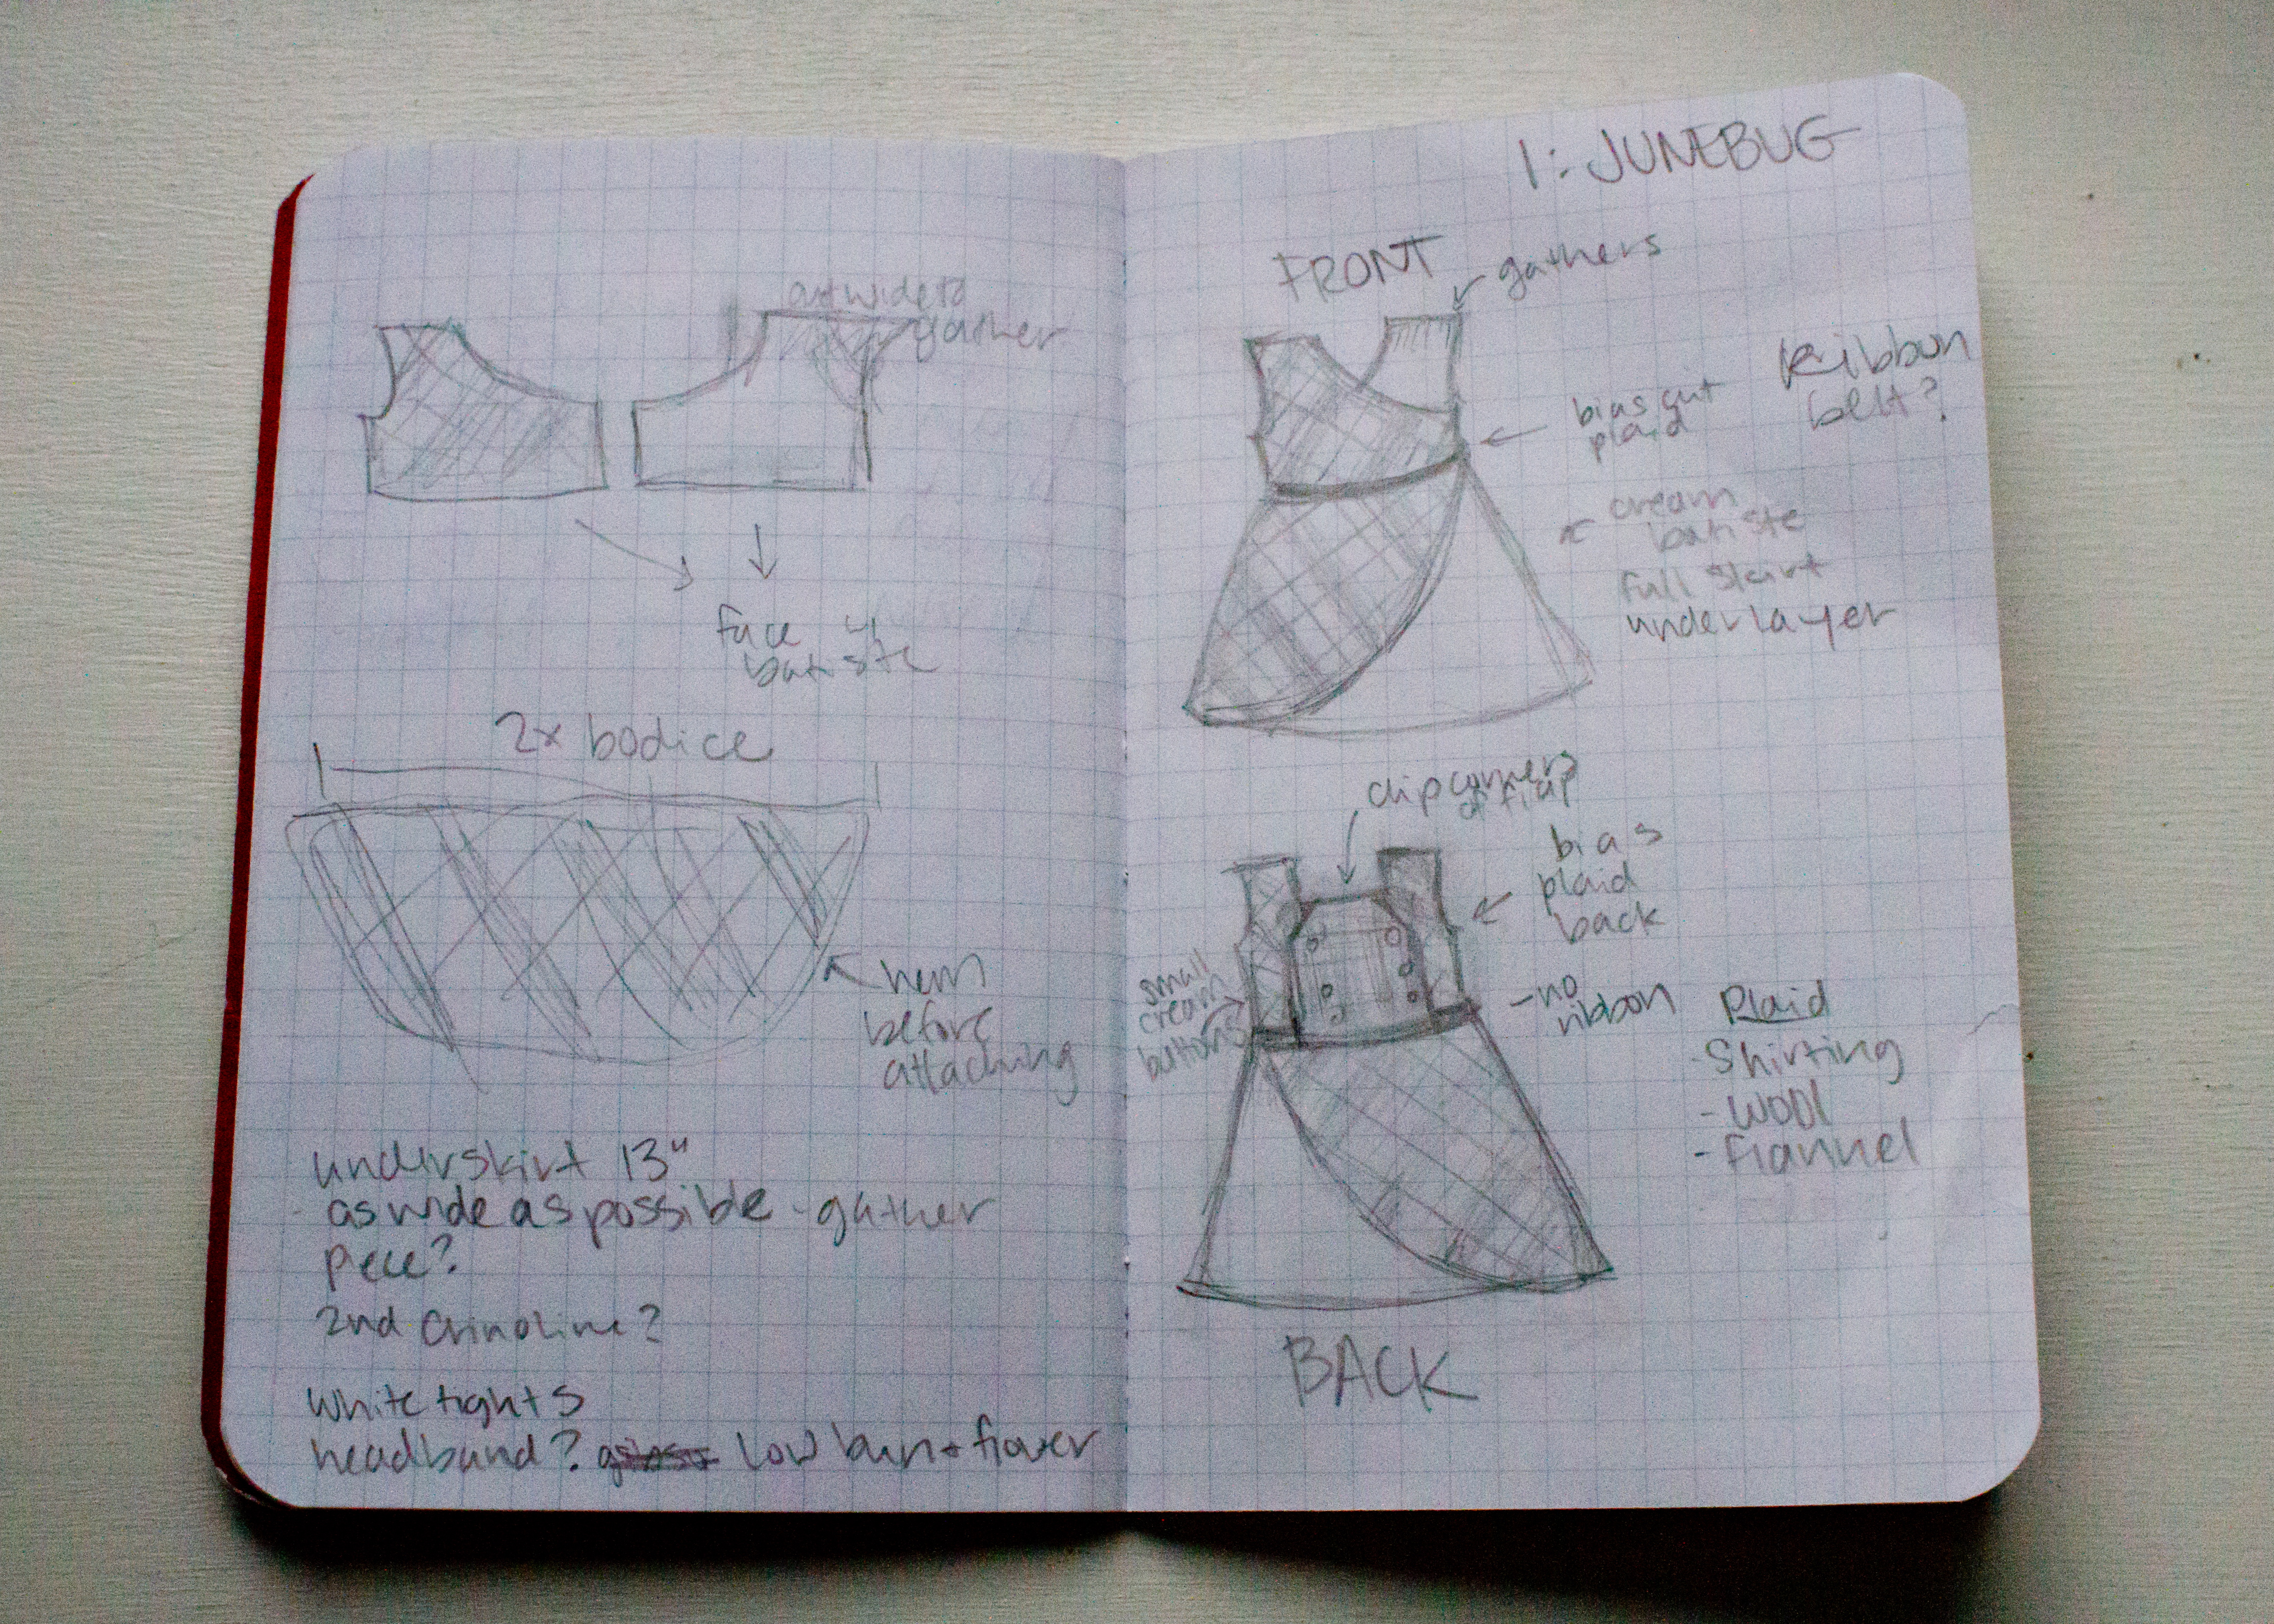 cut wide to
gather
face w/
batiste
2x bodice
hem
before
attaching
underskirt 13"
- as wide as possible - gather
piece?
2nd crinoline?
white tights
headband? low bun + flower
1: JUNEBUG
FRONT
gathers
Ribbon
belt?
bias cut
plaid
cream
batiste
full skirt
underlayer
clip corners
of flap
bias
plaid
back
small
cream
buttons
- no
ribbon
Plaid
- Shirting
- wool
- flannel
BACK